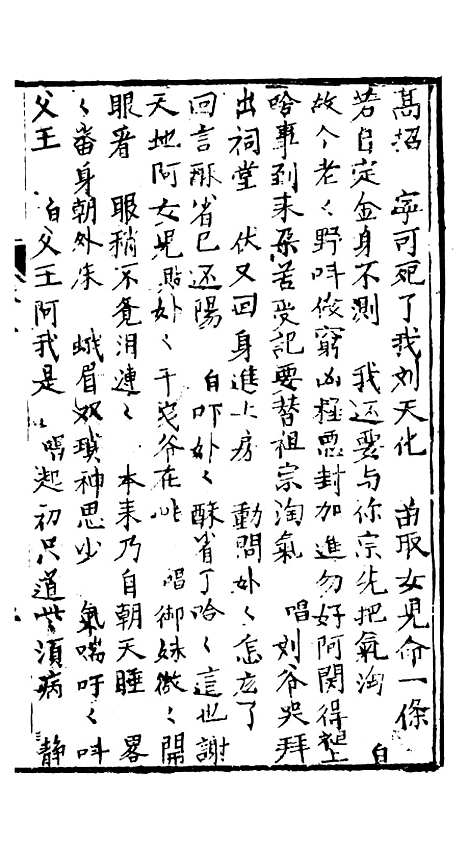 高招　寧可死了我刘天化　苗取女児命一條
若自定金身不測　我还要与你宗先把氣淘　白
故个老〻野呌俊窮凶極悪封加進勿好阿関得
啥事到来朶苦受記要替祖宗淘氣　唱刘爷哭拜
出祠堂　伏又回身進上房　動問外〻怎庅了
回言酥省已还陽　白吓外〻酥省了哈〻這也謝
天地阿女児貼外〻千歲爷在此　唱御妹微〻開
眼看　眼稍不覔泪連〻　本来乃自朝天睡　畧
〻畨身朝外床　蛾眉双鎖神思少　氣喘吁〻呌
父王　白父王阿我是　唱起初只道些湏病　静